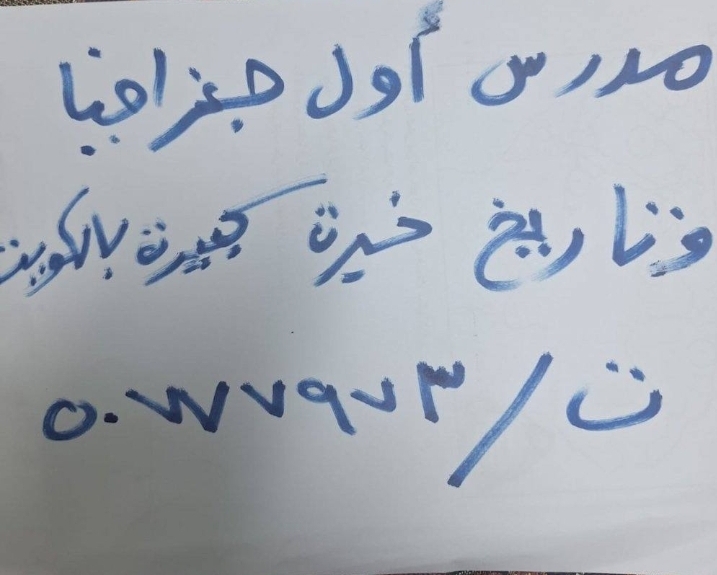 مدرس أول جغرافيا
وتاريخ خبرة كبيرة بالكويت
ت / ٥٠٧٧٧٩٧٣